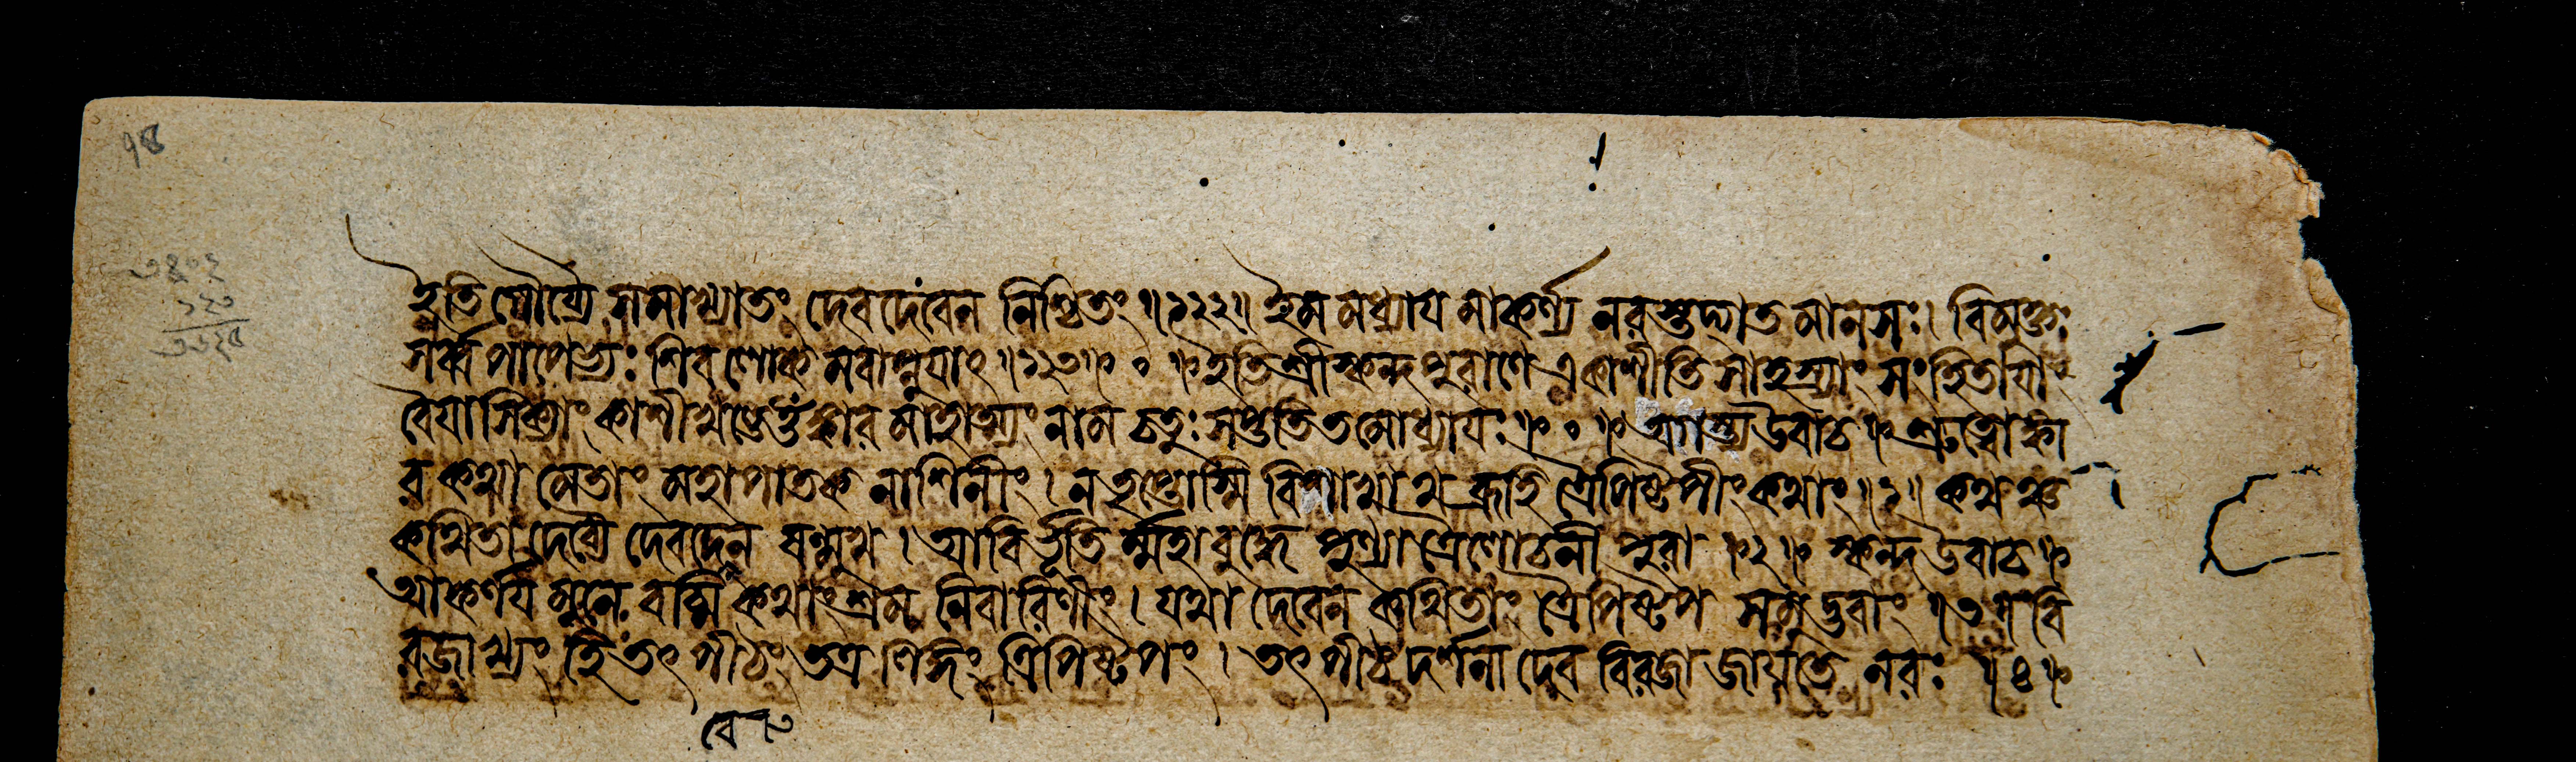 ৭৪
ইতি গৌর্য্যৈ সমাখ্যাতং দেবদেবেন নিশ্চিতং ॥১২২॥ ইমমধ্যায়মাকর্ণ্য নরস্তদ্গতমানসঃ। বিমুক্তঃ
সর্ব্বপাপেভ্যঃ শিবলোকমবাপ্নুয়াৎ ॥১২৩॥ ০ ॥ ইতি শ্রীস্কন্দপুরাণে একাশীতিসাহস্র্যাং সংহিতায়াং
বৈয়াসিক্যাং কাশীখণ্ডে ওঁঙ্কারমাহাত্ম্যং নাম চতুঃসপ্ততিতমোধ্যায়ঃ ॥ ০ ॥ অগস্ত্য উবাচ ॥ শ্রুত্বোঙ্কা
র কথা মেতাং মহাপাতক নাশিনীং। ন তৃপ্তোস্মি বিশাখাথ ব্রূহি ত্রৈপিষ্টপীং কথাং ॥১॥ কথঞ্চ
কথিতা দেব্যৈ দেবদেবেন ষন্মুখ। আবির্ভূতি র্ম্মহাবুদ্ধে পুণ্যা ত্রৈলোচনী পুরা ॥২॥ স্কন্দ উবাচ ॥
আকর্ণয় মুনে বচ্মি কথাং শ্রম নিবারিণীং। যথা দেবেন কথিতাং ত্রৈপিষ্টপ সমুদ্ভবাং ॥৩॥ বি
রজাখ্যং হি তৎ পীঠং তত্র লিঙ্গং ত্রিপিষ্টপং। তৎ পীঠ দর্শনা দেব বিরজা জায়তে নরঃ ॥৪॥